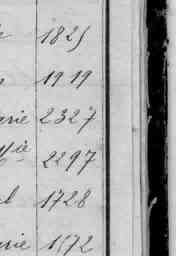 1825
1919
rie 2327
Mie 2297
l 1728
rie 1572